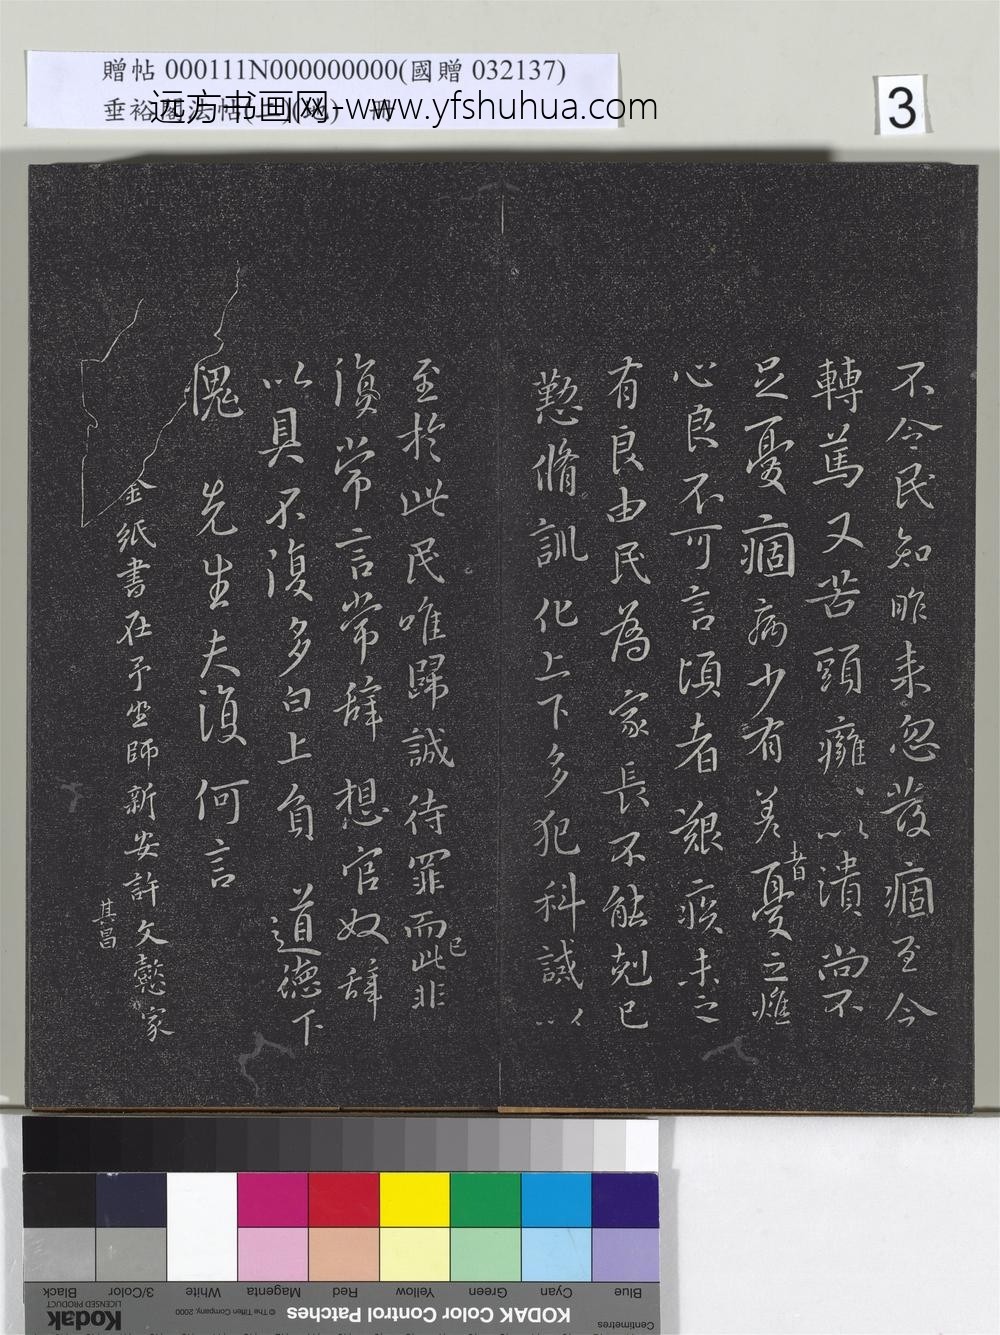 贈帖 000111N000000000(國贈 032137)
垂裕閣法帖
远方书画网-www.yfshuhua.com
3
不令民知昨来忽發痼至今
轉篤又苦頭癰、以潰尚不
足憂痼病少有差者憂之燋
心良不可言頃者艱疾未之
有良由民為家長不能剋己
懃脩訓化上下多犯科誡以
至於此民唯歸誠待罪而已此非
復常言常辞想官奴辞
以具不復多白上負道德下
愧先生夫復何言
金紙書在予坐師新安許文懿家
其昌
Black
3/Color
White
Magenta
Red
Yellow
Green
Cyan
Blue
Kodak
LICENSED PRODUCT
© The Tiffen Company, 2000
KODAK Color Control Patches
Centimetres